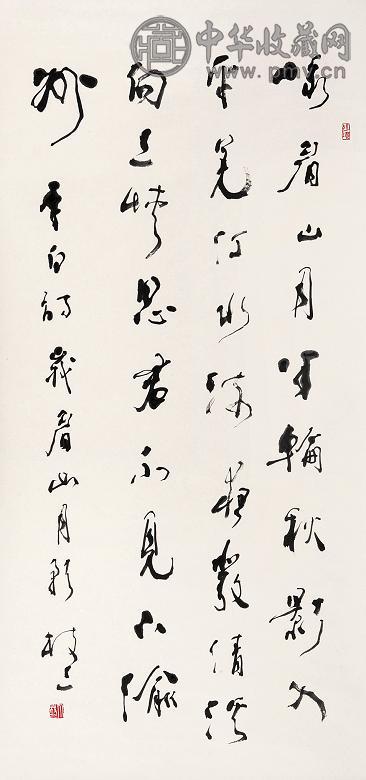 中华收藏网
www.pmv.cn
峨眉山月半輪秋影入
平羌江水流夜發清溪
向三峡思君不見下渝
州 李白詩峩眉山月歌